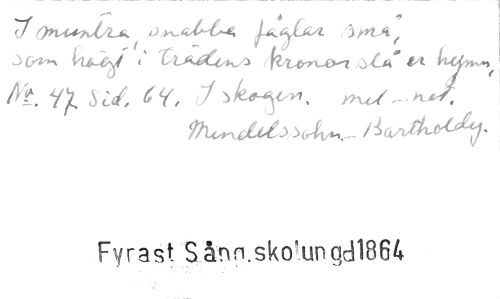 I muntra, snabba fåglar små,
som högt i trädens kronor slå er hymn,
No. 47 Sid. 64. I skogen. mel-not.
Mendelssohn-Bartholdy.
Fyrast Sång.skolungd1864